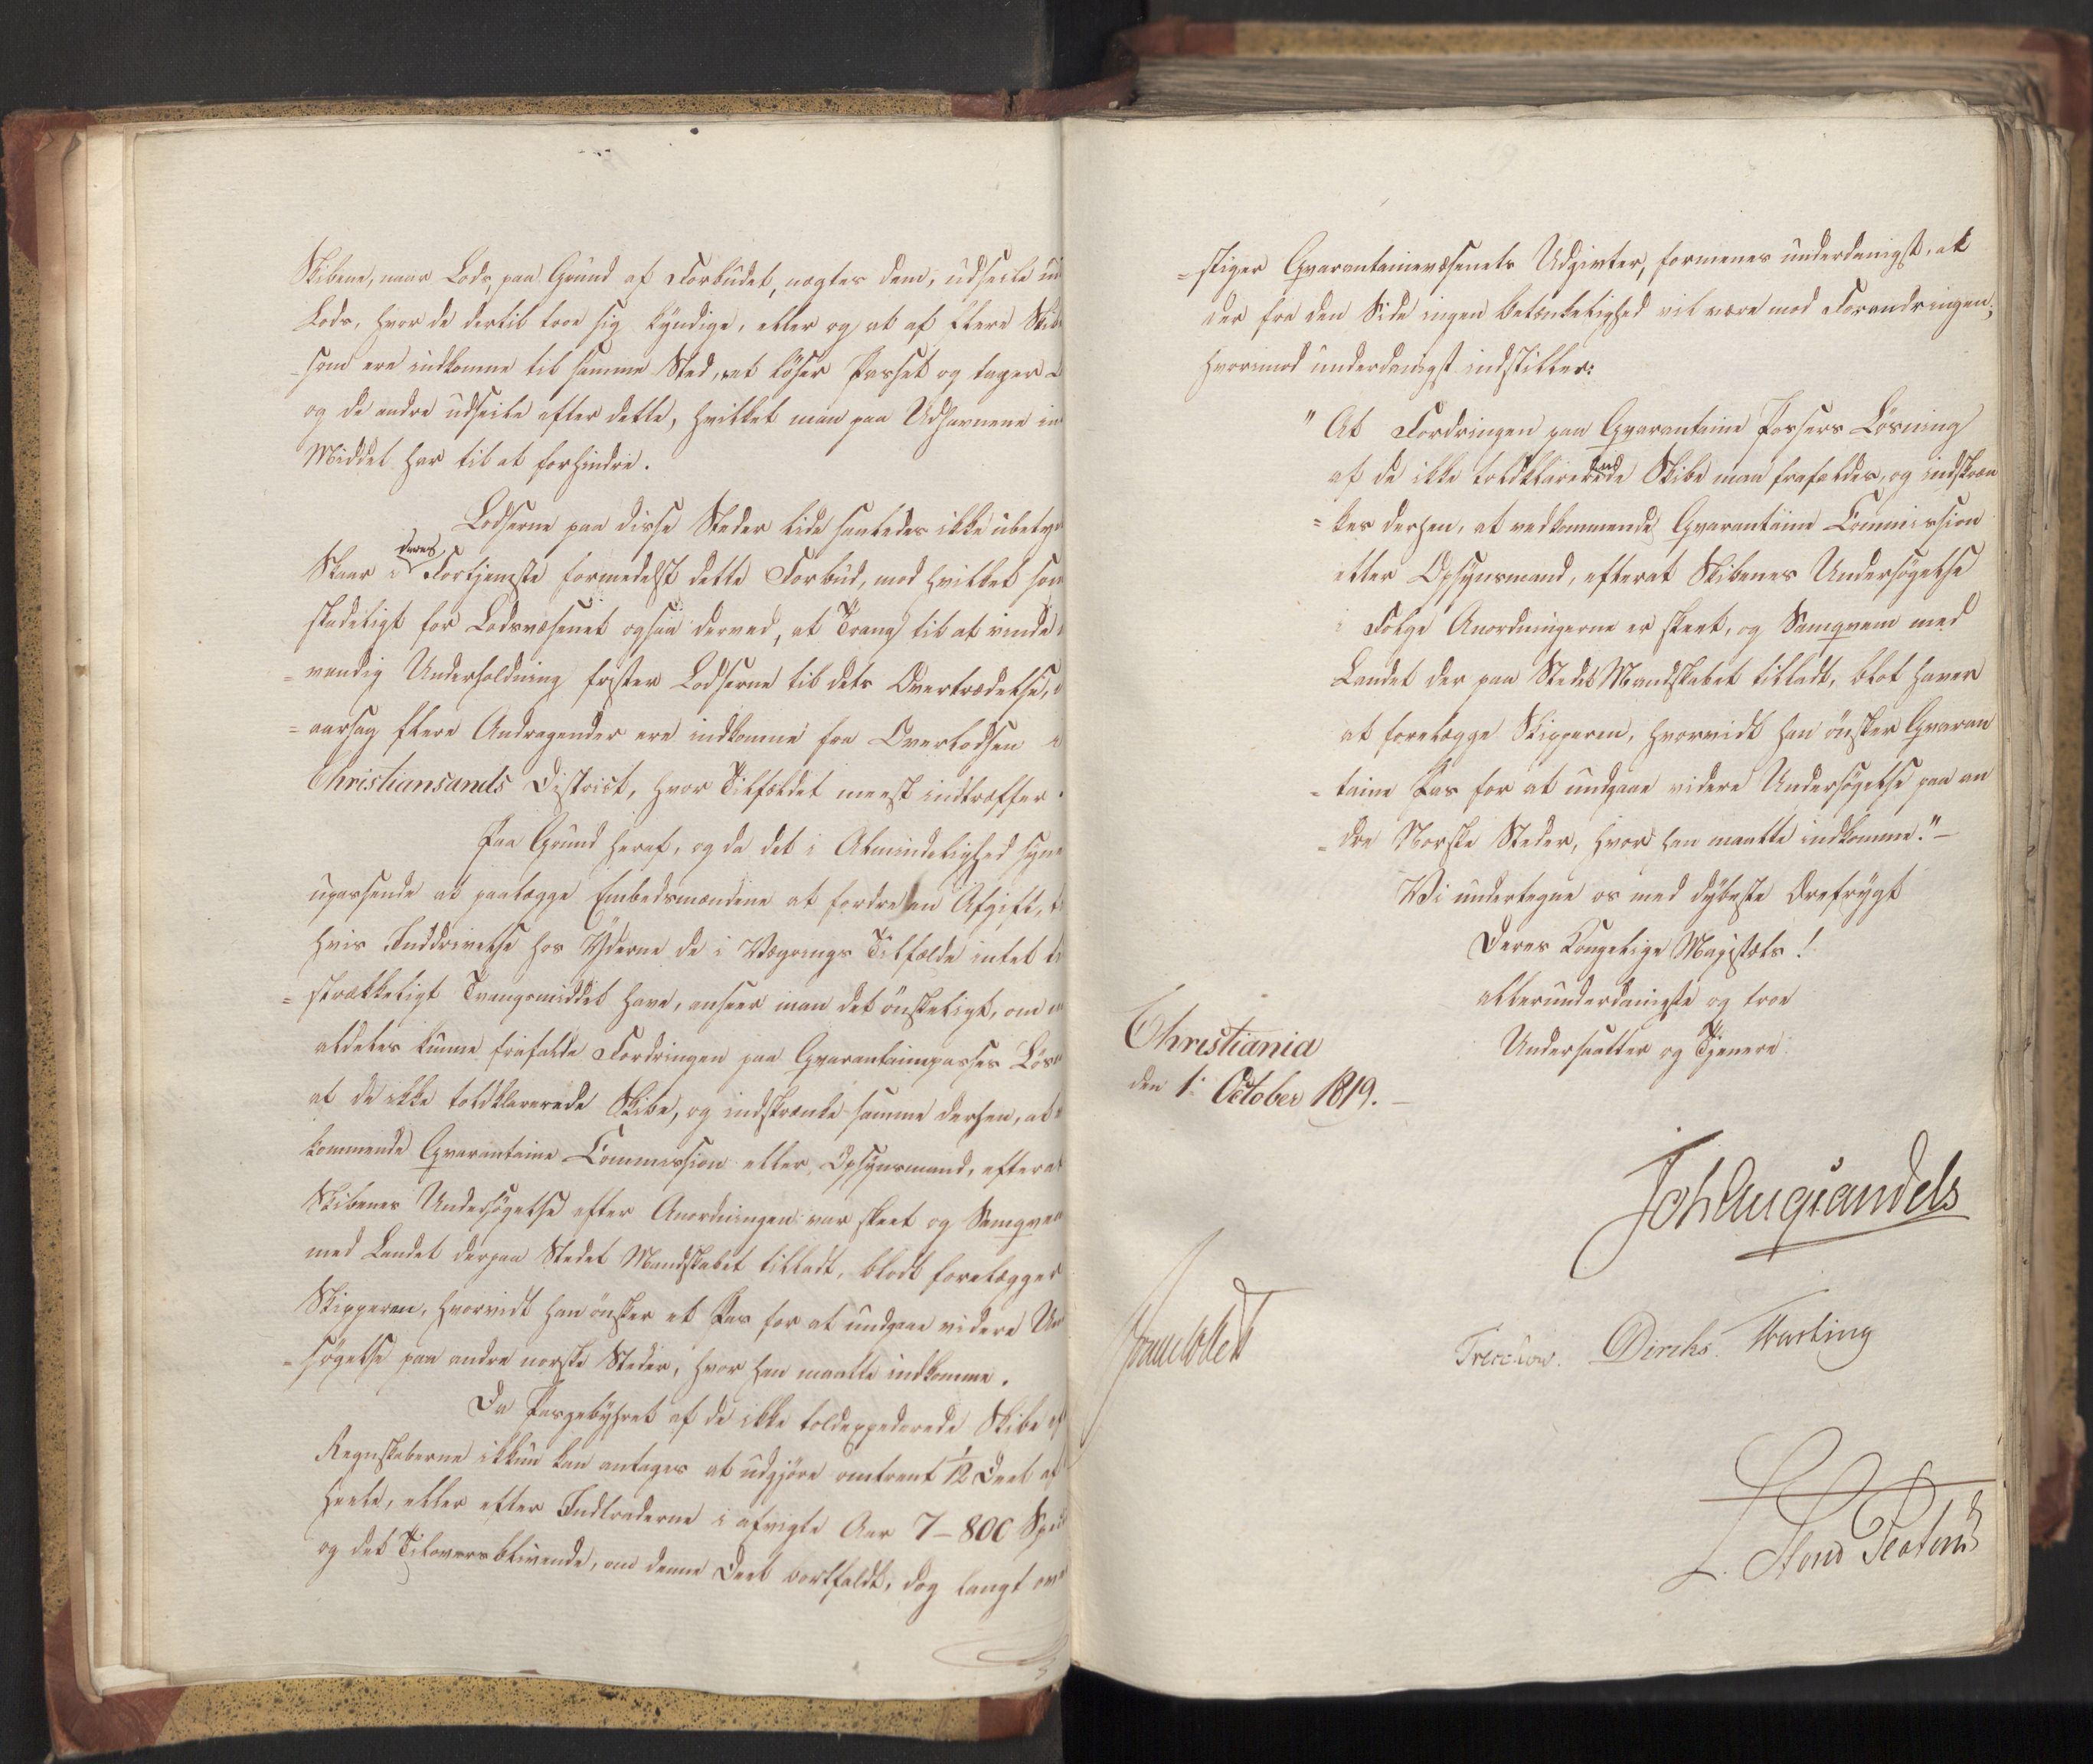 Skibene, naar Lods, paa Grund af Forbudet, nægtes dem, udseile ud
Lods, hvor de dertil troe sig kyndige, eller og at af flere Skib
som ere indkomne til samme Sted, eet löser Passet og tager L
og de andre udseile efter dette, hvilket man paa Udhavnene in
Middel har til at forhindre.
Lodserne paa disse Steder lide saaledes ikke ubety
Skaar i deres Fortjeneste formedelst dette Forbud, mod hvilket som
skadeligt for Lodsvæsenet ogsaa derved, at Trang til at vinde
=vendig Underholdning frister Lodserne til dets Overtrædelse,
=aarsag flere Andragender ere indkomne fra Overlodsen i
Christiansands District, hvor Tilfældet meest indtræffer.
Paa Grund heraf, og da det i Almindelighed syne
upassende at paalægge Embedsmændene at fordre en Afgift, ti
hvis Inddrivelse hos Yderne de i Vægrings Tilfælde intet ti
=strækkeligt Tvangsmiddel have, anseer man det önskeligt, om m
aldeles kunne frafalde Fordringen paa Qvarantainepasses Lös
af de ikke toldklarerede Skibe, og indskrænke samme derhen, at
kommende Qvarantaine Commission eller Opsynsmand, efterat
Skibenes Undersögelse efter Anordningen var skeet og Samqvem
med Landet derpaa Stedet Mandskabet tilladt, blodt forelægges
Skipperen, hvorvidt han önsker et Pas for at undgaae videre Un
=sögelse paa andre norske Steder, hvor han maatte indkomme.
Da Pasgebyhret af de ikke toldexpederede Skibe ef
Regnskaberne ikkun kan antages at udgjöre omtrent 1/12 Deel af
Heele, eller efter Indtraderne i afvigte Aar 7-800 Spec
og det Tiloversblivende, om denne Deel bortfaldt, dog langt ov
=stiger Qvarantainevæsenets Udgivter, formenes underdanigst, at
der fra den Side ingen Betænkelighed vil være mod Forandringen;
hvorimod underdanigst indstilles:
"At Fordringen paa Qvarantaine Passers Lösning
af de ikke toldklarerede Skibe maa frafaldes, og indskræn
=kes derhen, at vedkommende Qvarantaine Commission
eller Opsynsmand, efterat Skibenes Undersögelse
i Fölge Anordningerne er skeet, og Samqvem med
Landet der paa Stedet Mandskabet tilladt, blot haver
at forelægge Skipperen, hvorvidt han önsker Qvaran
=taine Pas for at undgaae videre Undersögelse paa an
=dre Norske Steder, hvor han maatte indkomme."-
Vi undertegne os med dybeste Ærefrygt
Deres Kongelige Majestæts!
allerunderdanigste og troe
Undersaatter og Tjenere
Christiania
den 1: October 1819.-
Joh Aug Sandels
Sommerhielm
Treschow. Diriks. Fasting
L. Stoud Platou